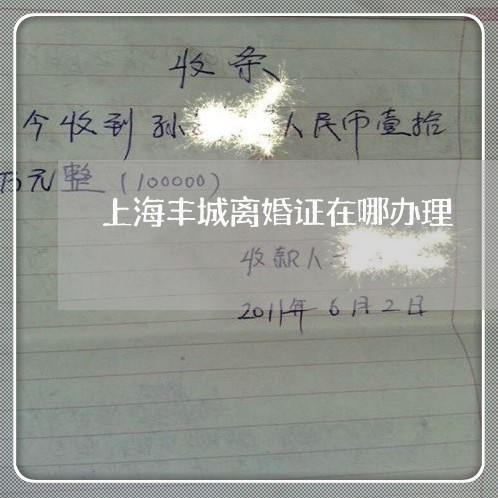 收条
今收到孙 人民币壹拾
万元整（100000）
上海丰城离婚证在哪办理
收款人
2011年6月2日